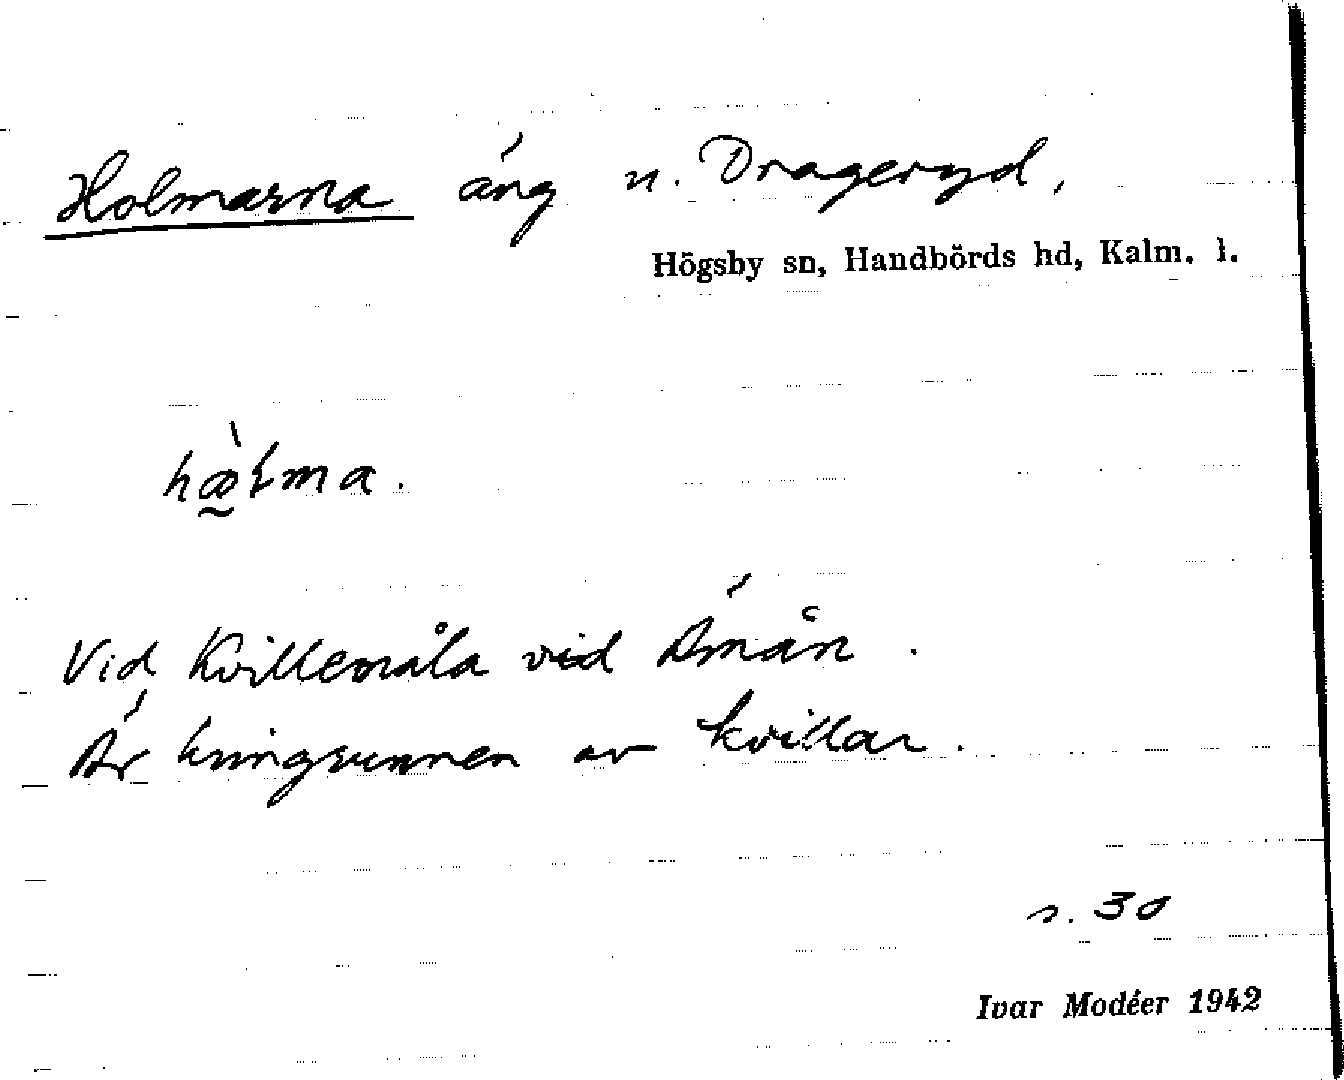 Holmarna äng u. Drageryd,
Högsby sn, Handbörds hd, Kalm. l.
hæ̀ɫma.
Vid Kvillemåla vid Åmån.
Är kringrunnen av kvillar.
s. 30
Ivar Modéer 1942